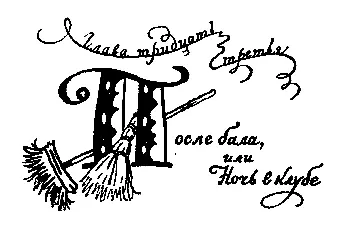 Глава тридцать третья
После бала,
или
Ночь в клубе